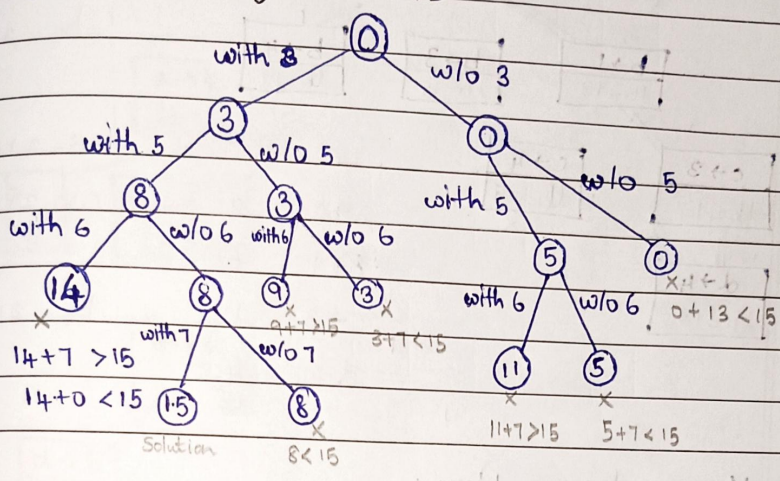 0
with 3
w/o 3
3
0
with 5
w/o 5
with 5
w/o 5
8
3
5
0
with 6
w/o 6
with 6
w/o 6
with 6
w/o 6
x
0 + 13 < 15
14
8
9
3
11
5
x
x
x
x
x
9+7>15
3+7<15
14+7 >15
with 7
w/o 7
14+0 <15
15
8
11+7>15
5+7<15
Solution
x
8<15